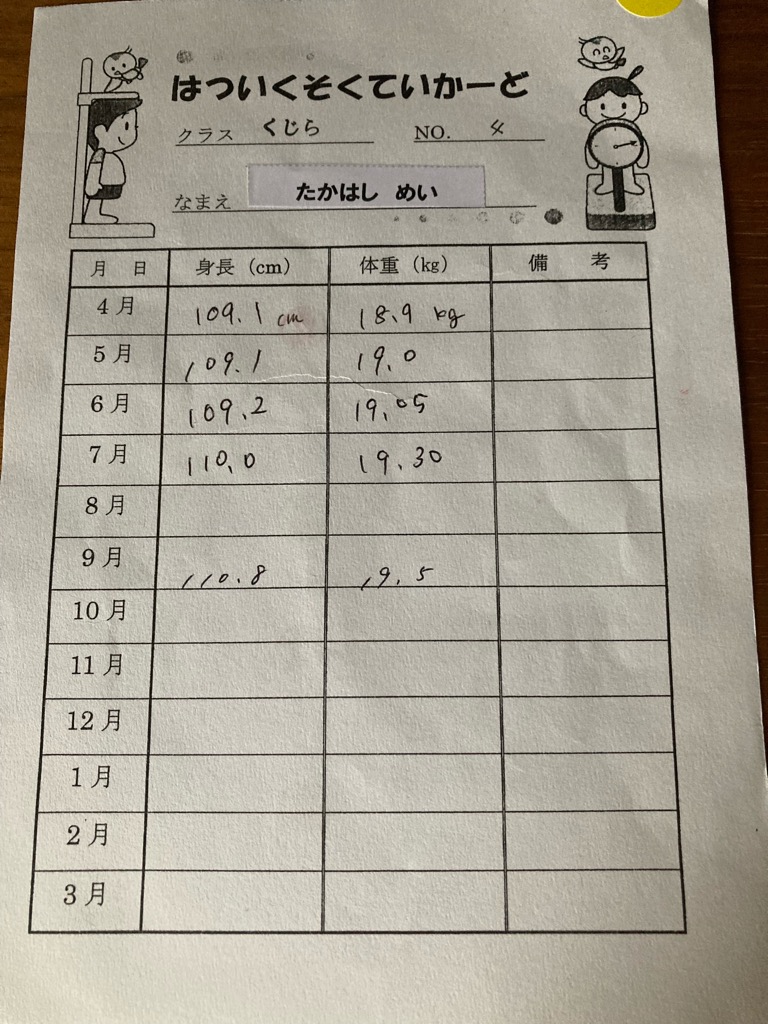 はついくそくていかーど
クラス くじら NO. 4
なまえ たかはし めい
月 日 身長（cm） 体重（kg） 備 考
4月 109.1 cm 18.9 kg
5月 109.1 19.0
6月 109.2 19.05
7月 110.0 19.30
8月
9月 110.8 19.5
10月
11月
12月
1月
2月
3月